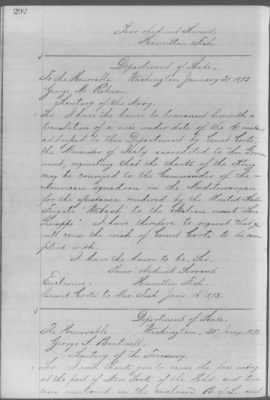 292
Your obedient Servant,
Hamilton Fish.
Department of State,
To the Honorable Washington January 21 1873.
George M. Robeson,
Secretary of the Navy.
Sir: I have the honor to transmit herewith a
translation of a note under date of the
addressed to this Department by Count Corti,
the Minister of Italy accredited to this Govern
ment, requesting that the thanks of the King
may be conveyed to the Commander of the
American squadron in the Mediterranean
for the assistance rendered by the United States
Frigate "Wabash" to the Italian vessel
I have therefore to request that you
will cause the wish of Count Corti to be com
plied with.
I have the honor to be, Sir,
Your obedient Servant
Enclosure: Hamilton Fish.
Count Corti to Mr Fish, Jan. 1873.
Department of State,
The Honorable Washington, 21 1873
George S. Boutwell,
Secretary of the Treasury.
Sir: I will thank you to cause the free entry
at the port of New York of the
mentioned in the enclosed B. of L. and